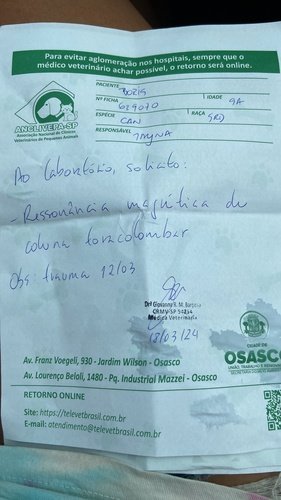 Para evitar aglomeração nos hospitais, sempre que o
médico veterinário achar possível, o retorno será online.
PACIENTE BORIS
Nº FICHA 629070 IDADE 9A
ESPÉCIE CAN RAÇA SRD
RESPONSÁVEL
ANCLIVEPA-SP
Associação Nacional de Clínicos
Veterinários de Pequenos Animais
Ao laboratório, solicito:
- Ressonância magnética de
coluna toracolombar
Obs: trauma 12/03
Drª Giovanna R. M.
CRMV-SP
Médica Veterinária
18/03/24
CIDADE DE
OSASCO
UNIÃO, TRABALHO E
SECRETARIA DO MEIO AMBIENTE
Av. Franz Voegeli, 930 - Jardim Wilson - Osasco
Av. Lourenço Beloli, 1480 - Pq. Industrial Mazzei - Osasco
RETORNO ONLINE
Site: https://televetbrasil.com.br
E-mail: atendimento@televetbrasil.com.br